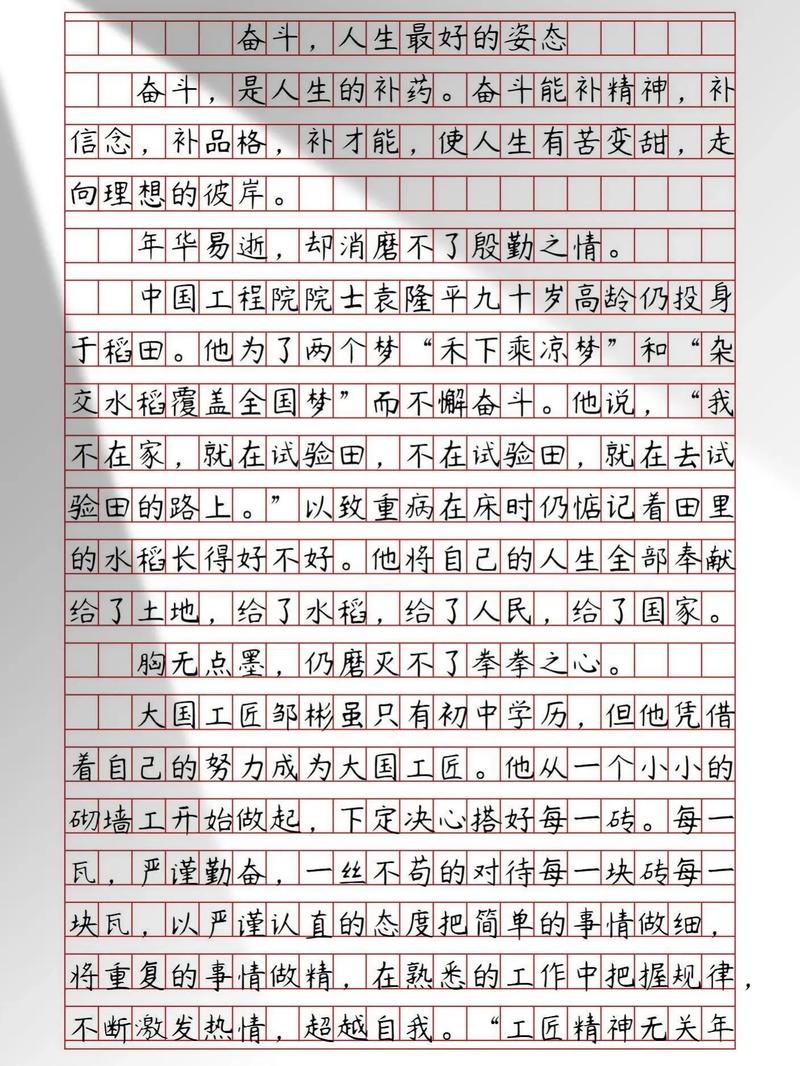 奋斗，人生最好的姿态
奋斗，是人生的补药。奋斗能补精神，补
信念，补品格，补才能，使人生有苦变甜，走
向理想的彼岸。
年华易逝，却消磨不了殷勤之情。
中国工程院院士袁隆平九十岁高龄仍投身
于稻田。他为了两个梦“禾下乘凉梦”和“杂
交水稻覆盖全国梦”而不懈奋斗。他说，“我
不在家，就在试验田，不在试验田，就在去试
验田的路上。”以致重病在床时仍惦记着田里
的水稻长得好不好。他将自己的人生全部奉献
给了土地，给了水稻，给了人民，给了国家。
胸无点墨，仍磨灭不了拳拳之心。
大国工匠邹彬虽只有初中学历，但他凭借
着自己的努力成为大国工匠。他从一个小小的
砌墙工开始做起，下定决心搭好每一砖。每一
瓦，严谨勤奋，一丝不苟的对待每一块砖每一
块瓦，以严谨认直的态度把简单的事情做细，
将重复的事情做精，在熟悉的工作中把握规律，
不断激发热情，超越自我。“工匠精神无关年